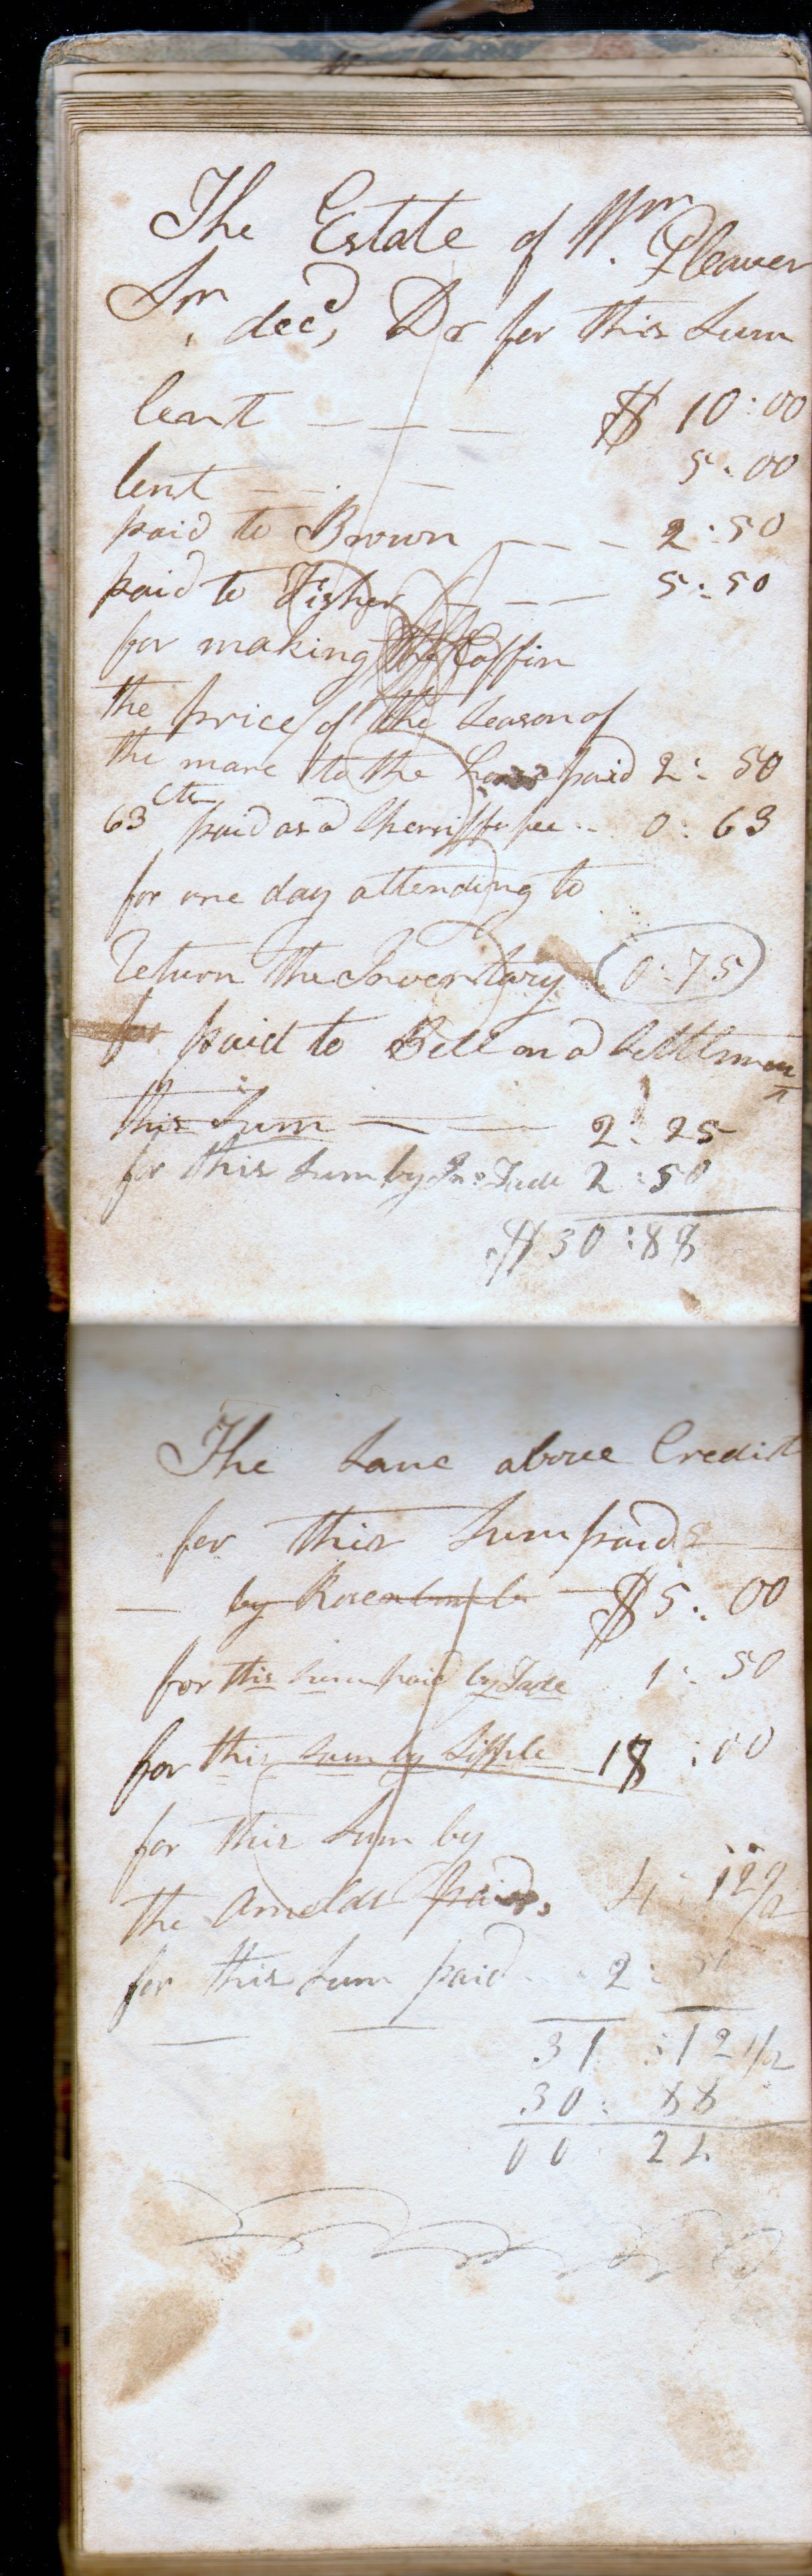 The Estate of Wm. Cleaver
Snr. decd, Dr for this Sum
lent — — — $ 10:00
lent — — — 5:00
paid to Brown — — — 2:50
paid to Fisher — — — 5:50
for making the Coffin
the price of the Season of
the mare to the horse paid 2:50
63 cts paid as a Sherriffs fee .. 0:63
for one day attending to
Return the Inventory (0:75)
for paid to Bell on a Settlment
this Sum — — 2:25
for this Sum by Jno Tade 2:50
$30:88
The Same above Credit
for this Sum paid
— by — $5:00
for this Sum paid by Tade 1:50
for this Sum by 18:00
for this Sum by
the paid, 4:12 1/2
for this Sum paid 2:50
31:12 1/2
30:88
00 24